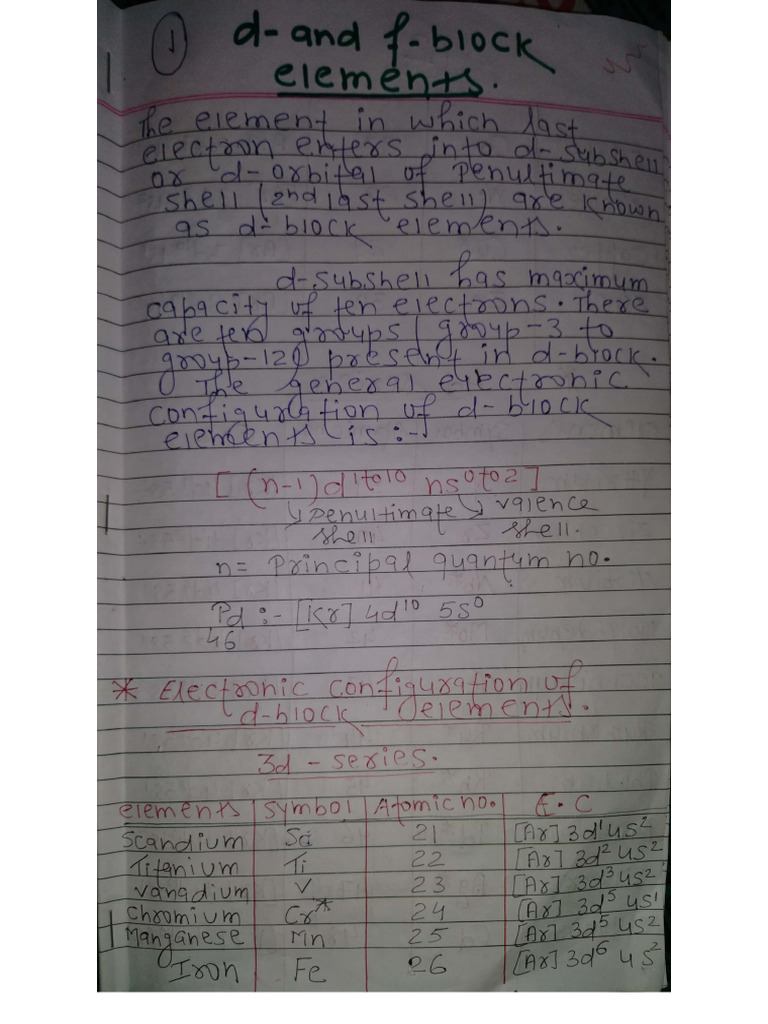 ① d- and f-block
elements.
The element in which last
electron enters into d-subshell
or d-orbital of penultimate
shell (2nd last shell) are known
as d-block elements.
d-subshell has maximum
capacity of ten electrons. There
are ten groups (group-3 to
group-12) present in d-block.
The general electronic
configuration of d-block
elements is :-
[(n-1)d¹ᵗᵒ¹⁰ ns⁰ᵗᵒ²]
↳ penultimate ↳ valence
shell shell.
n= Principal quantum no.
Pd :- [Kr] 4d¹⁰ 5s⁰
46
* Electronic configuration of
d-block elements.
3d - series.
elements | symbol | Atomic no. | E.C
Scandium Sc 21 [Ar] 3d¹ 4s²
Titanium Ti 22 [Ar] 3d² 4s²
Vanadium V 23 [Ar] 3d³ 4s²
Chromium Cr* 24 [Ar] 3d⁵ 4s¹
Manganese Mn 25 [Ar] 3d⁵ 4s²
Iron Fe 26 [Ar] 3d⁶ 4s²